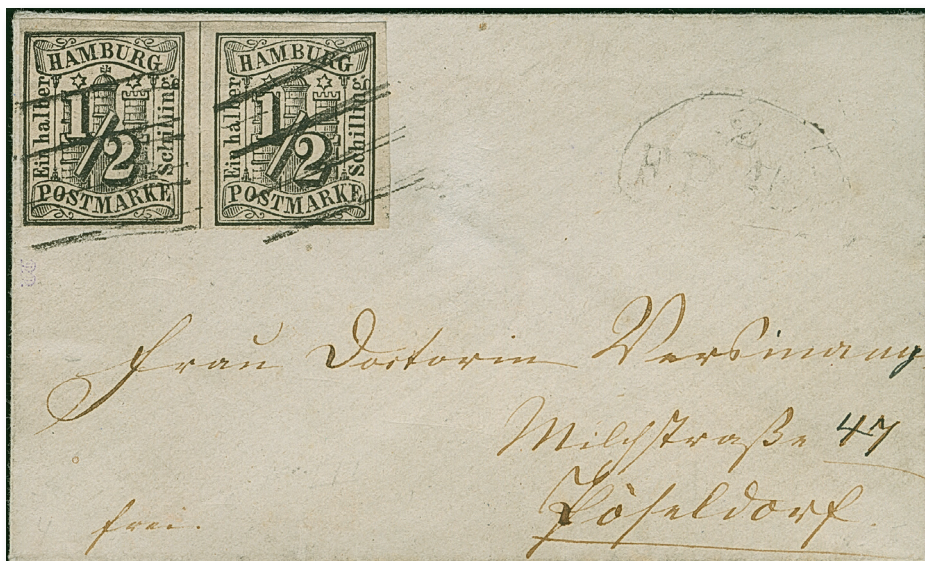 HAMBURG
Ein halber
1/2
Schilling
POSTMARKE
HAMBURG
Ein halber
1/2
Schilling
POSTMARKE
2
Frau Doctorin Versmann
Milchstraße 47
Pöseldorf.
frei.